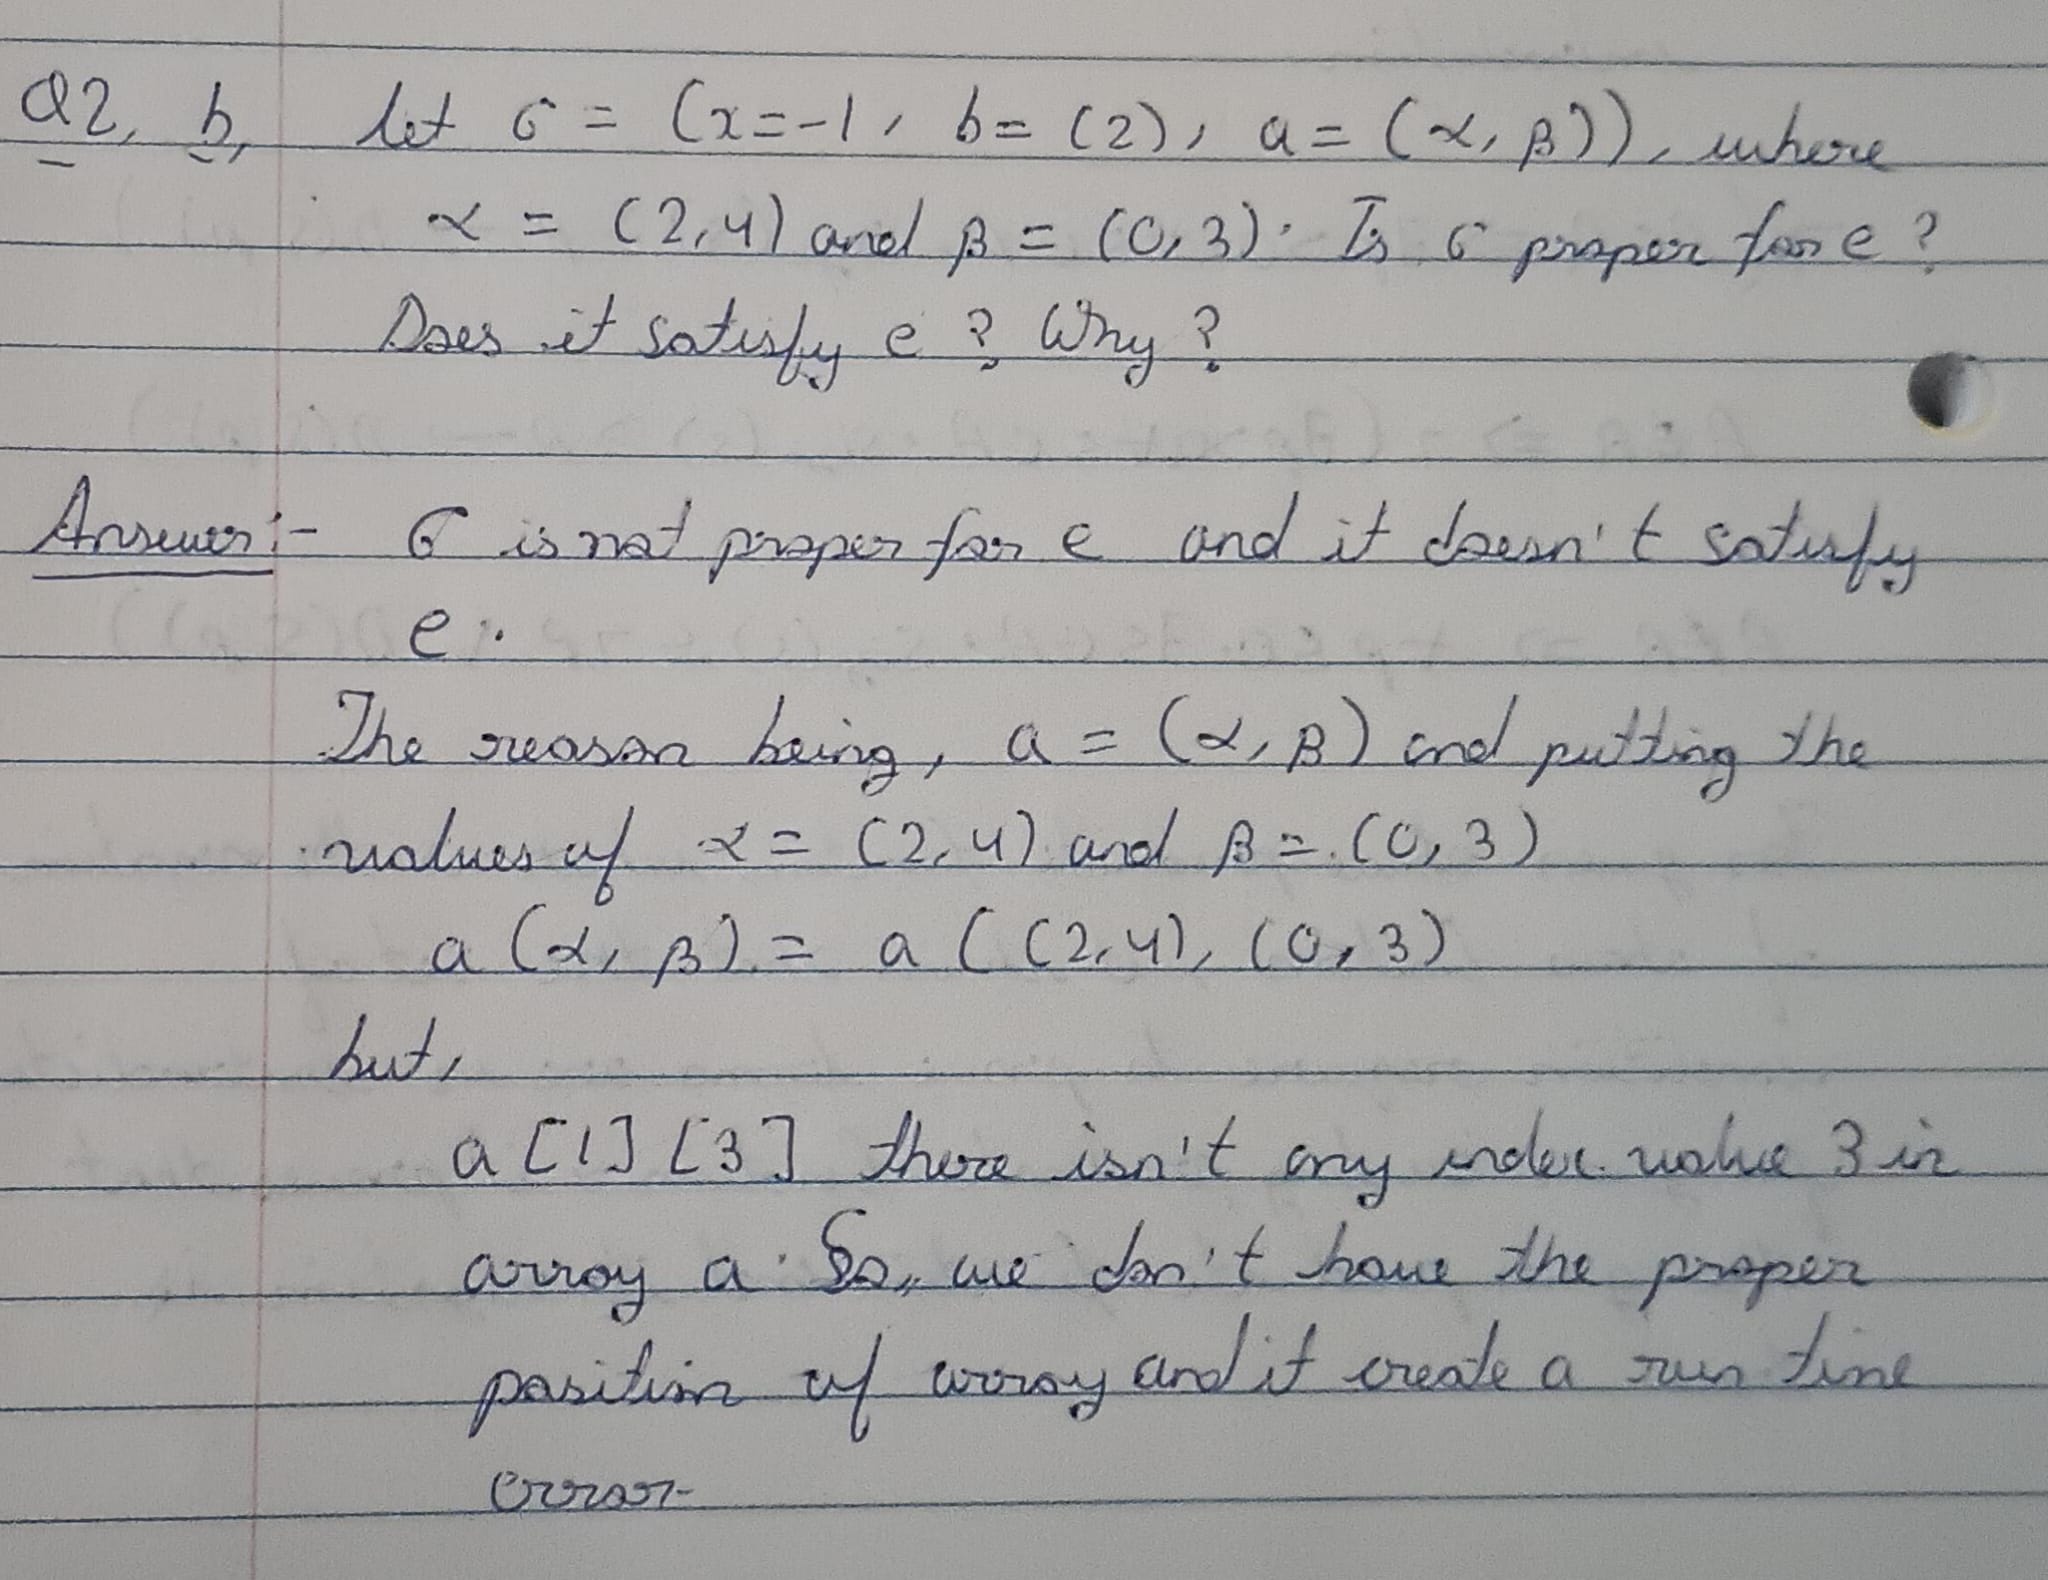 Q2, b, let σ = (x=-1, b=(2), a=(α, β)), where
α = (2,4) and β = (0,3). Is σ proper for e?
Does it satisfy e? Why?
Answer:- σ is not proper for e and it doesn't satisfy
e.
The reason being, a = (α, β) and putting the
values of α = (2,4) and β = (0, 3)
a (α, β) = a ( (2,4), (0,3)
but,
a [1] [3] there isn't any index value 3 in
array a. So, we don't have the proper
position of array and it create a run time
error